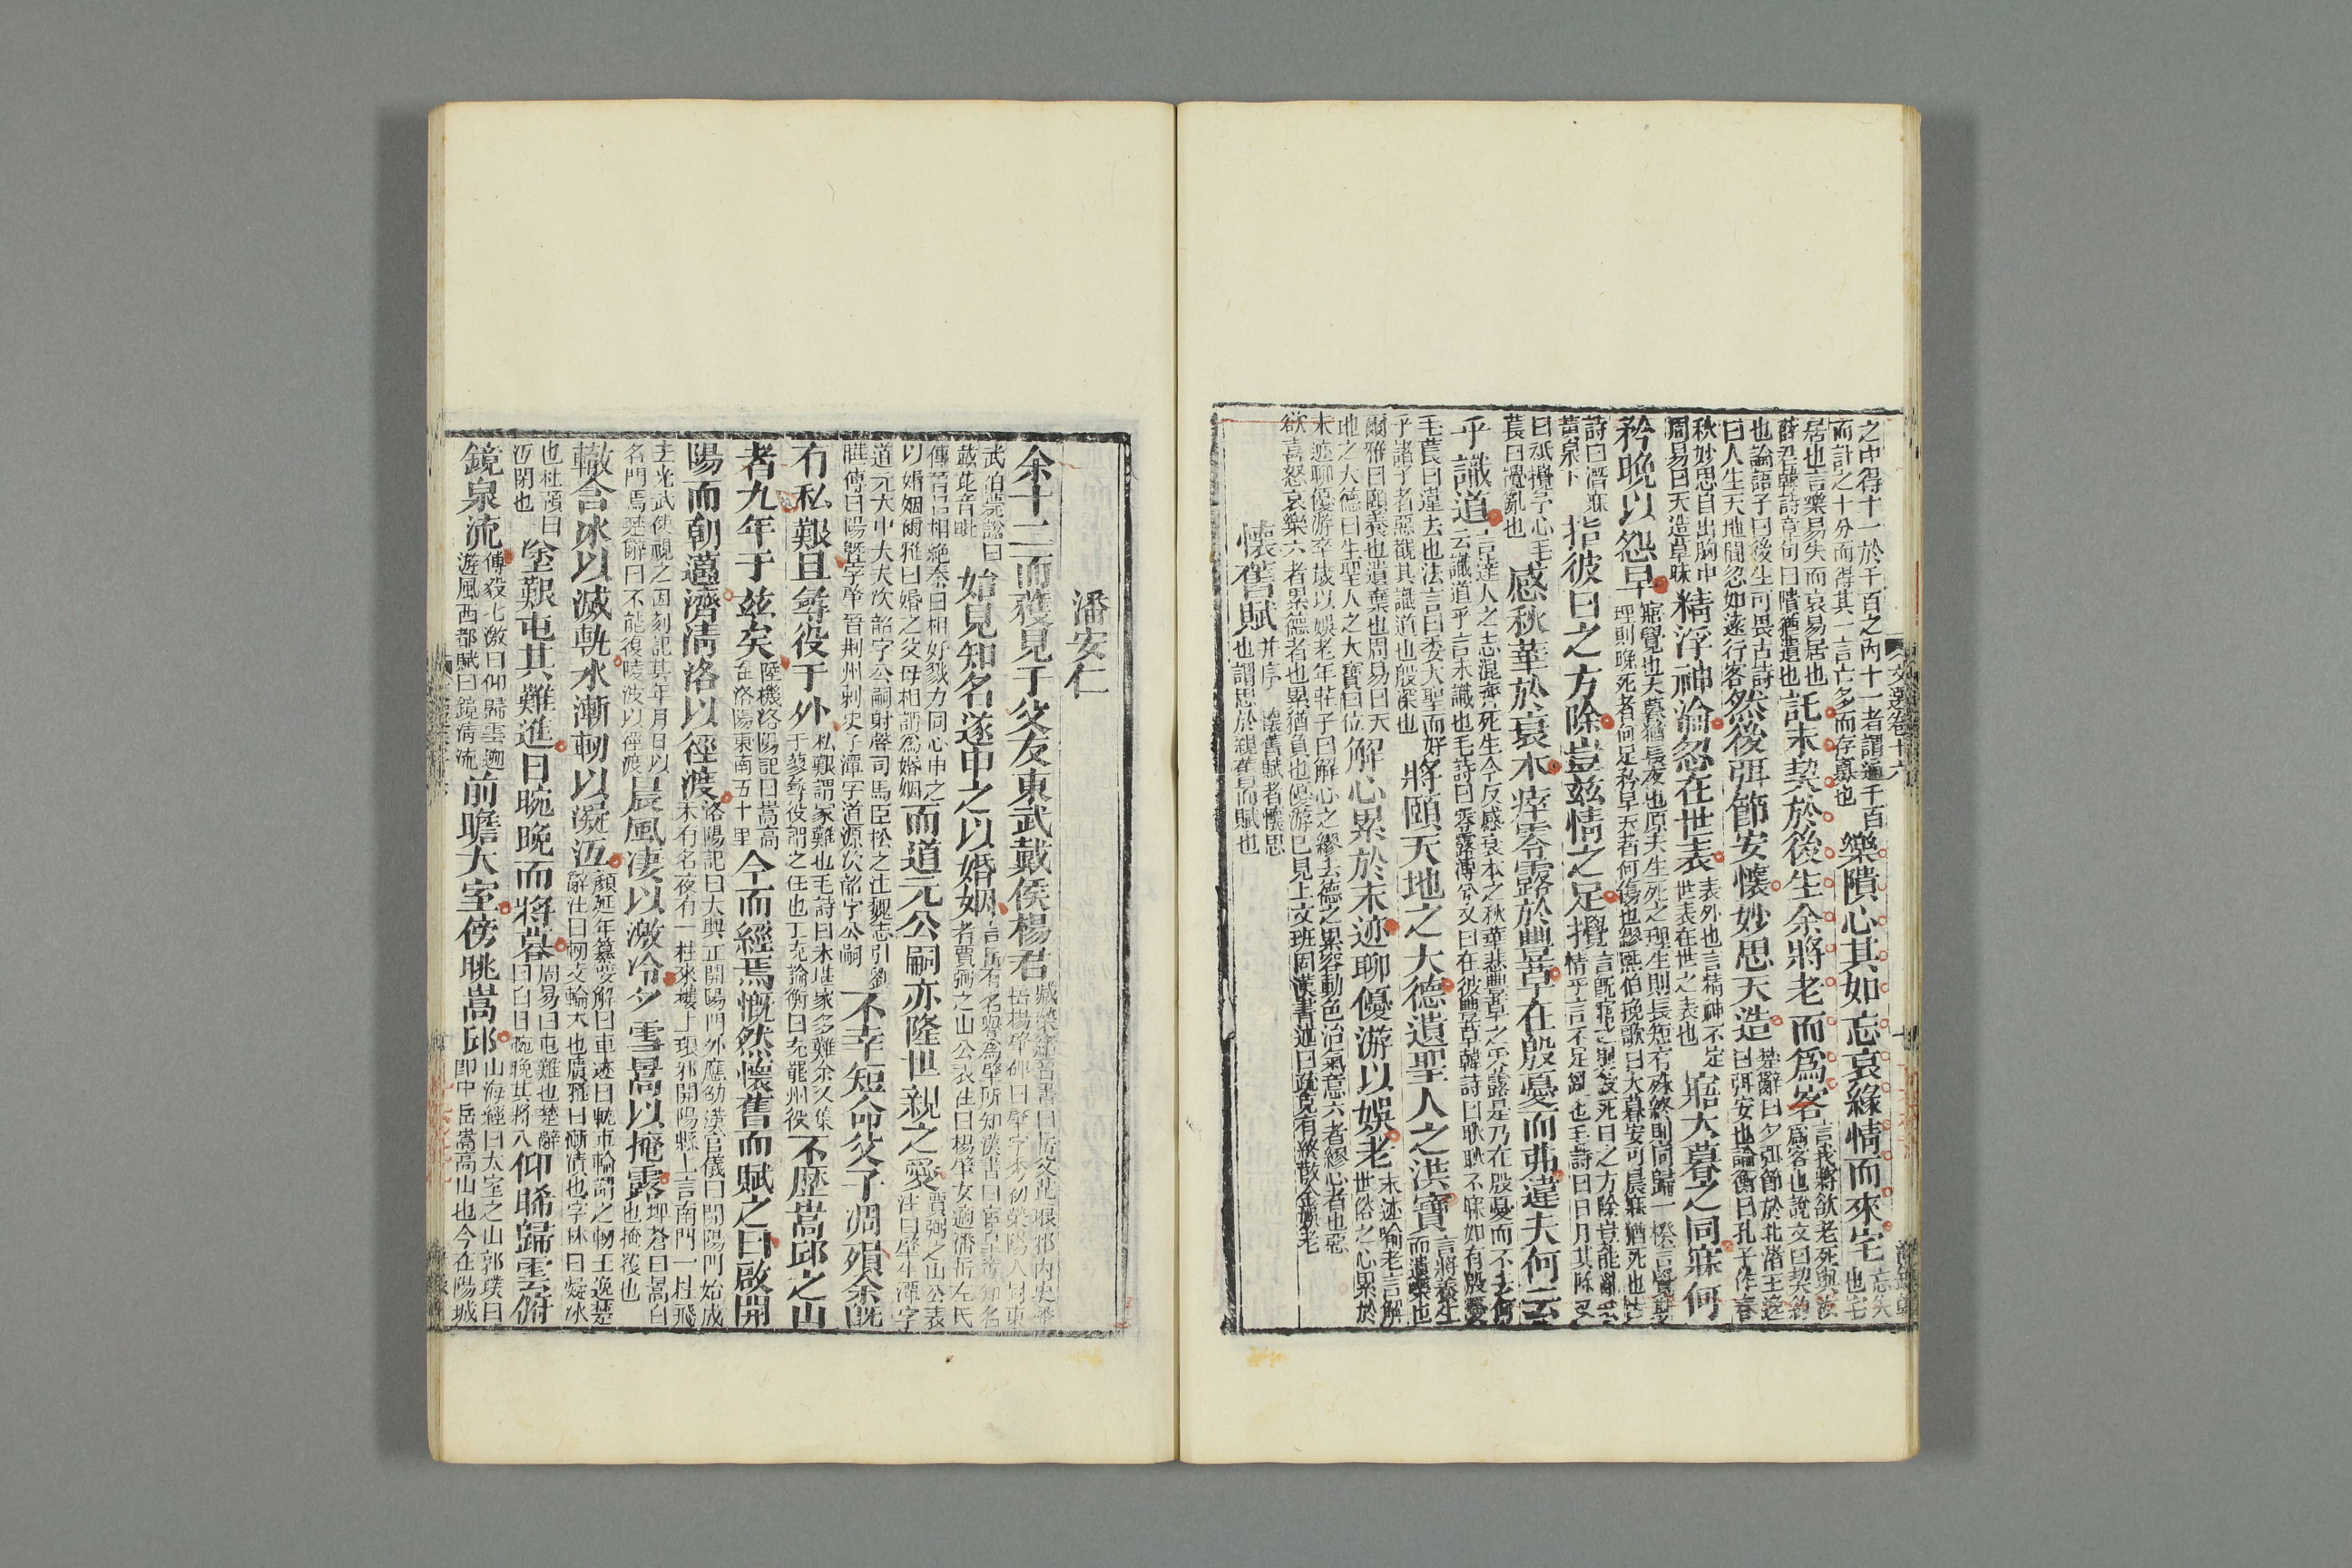 之中得十一於千百之內十一者謂通千百而計之十分而得其一言亡多而存寡也樂隤心其如忘哀緣情而來宅忘失也宅
居也言樂易失而哀易居也薛君韓詩章句曰隤猶遺也託末契於後生余將老而爲客言我將欲老死與汝爲客也說文曰契約
也論語子曰後生可畏古詩曰人生天地間忽如遠行客然後弭節安懷妙思天造楚辭曰夕弭節於北渚王逸曰弭安也論衡曰孔子作春
秋妙思自出胸中周易曰天造草昧精浮神淪忽在世表表外也言精神不定世表在世之表也寤大暮之同寐何
矜晚以怨早寤覺也大暮猶長夜也原夫生死之理生則長短有殊終則同歸一揆言覺斯理則晚死者何足矜早夭者何傷也繆熙伯挽歌曰大暮安可晨寐猶死也古
詩曰潛寐黃泉下指彼日之方除豈茲情之足攪言既寤之則彼死日之方除豈能亂情乎言不足亂也毛詩曰日月其除又
曰祇攪予心毛萇曰攪亂也感秋華於衰木瘁零露於豐草在殷憂而弗違夫何云
乎識道言達人之志混齊死生今反感衰木之秋華悲豐草之零露是乃在殷憂而不去何云識道乎言未識也毛詩曰零露漙兮又曰在彼豐草韓詩曰耿耿不寐如有殷憂
毛萇曰違去也法言曰委大聖而好乎諸子者惡覩其識道也殷深也將頤天地之大德遺聖人之洪寶言將養生而遺榮也
爾雅曰頤養也遺棄也周易曰天地之大德曰生聖人之大寶曰位解心累於末迹聊優游以娛老末迹喻老言解世俗之心累於
末迹聊優游卒歲以娛老年莊子曰解心之繆去德之累容動色治氣意六者繆心者也惡欲喜怒哀樂六者累德者也累猶負也優游已見上文班固漢書述曰疏克有終散金娛老
懷舊賦并序 懷舊賦者懷思也謂思於親舊而賦也
文選卷十六
潘安仁
余十二而獲見于父友東武戴侯楊君臧榮緒晉書曰岳父芘琅邪內史潘岳楊肇碑曰肇字秀初滎陽人封東
武伯薨諡曰戴芘音毗始見知名遂申之以婚姻言岳有名譽爲肇所知漢書曰竇皇帝知名者賈弼之山公表注曰楊肇女適潘岳左氏
傳晉呂相絶秦曰相好戮力同心申之以婚姻爾雅曰婚之父母相謂爲婚姻而道元公嗣亦隆世親之愛賈弼之山公表注曰肇生潭字
道元太中大夫次韶字公嗣射聲司馬臣松之注魏志引劉曄傳曰陽曁字肇晉荆州刺史子潭字道源次韶字公嗣不幸短命父子凋殞余既
有私艱且尋役于外私艱謂家難也毛詩曰未堪家多難余又集于蓼尋役謂之任也丁充論衡曰充罷州役不歷嵩邱之山
者九年于茲矣陸機洛陽記曰嵩高在洛陽東南五十里今而經焉慨然懷舊而賦之曰啟開
陽而朝邁濟清洛以徑渡洛陽記曰大興正開陽門外應劭漢官儀曰開陽門始成未有名夜有一柱來樓上琅邪開陽縣上言南門一柱飛
去光武使視之因刻記其年月日以名門焉楚辭曰不能復陵波以徑渡晨風凄以激冷夕雪暠以掩路埤蒼曰暠白也掩覆也
轍含冰以滅軌水漸軔以凝沍顏延年纂要解曰車迹曰軌車輪謂之軔王逸楚辭注曰軔支輪木也廣雅曰漸漬也字林曰凝冰
也杜預曰沍閉也塗艱屯其難進日晼晚而將暮周易曰屯難也楚辭曰白日晼晚其將入仰睎歸雲俯
鏡泉流傅毅七激曰仰歸雲遡游風西都賦曰鏡清流前瞻太室傍眺嵩邱山海經曰太室之山郭璞曰卽中岳嵩高山也今在陽城